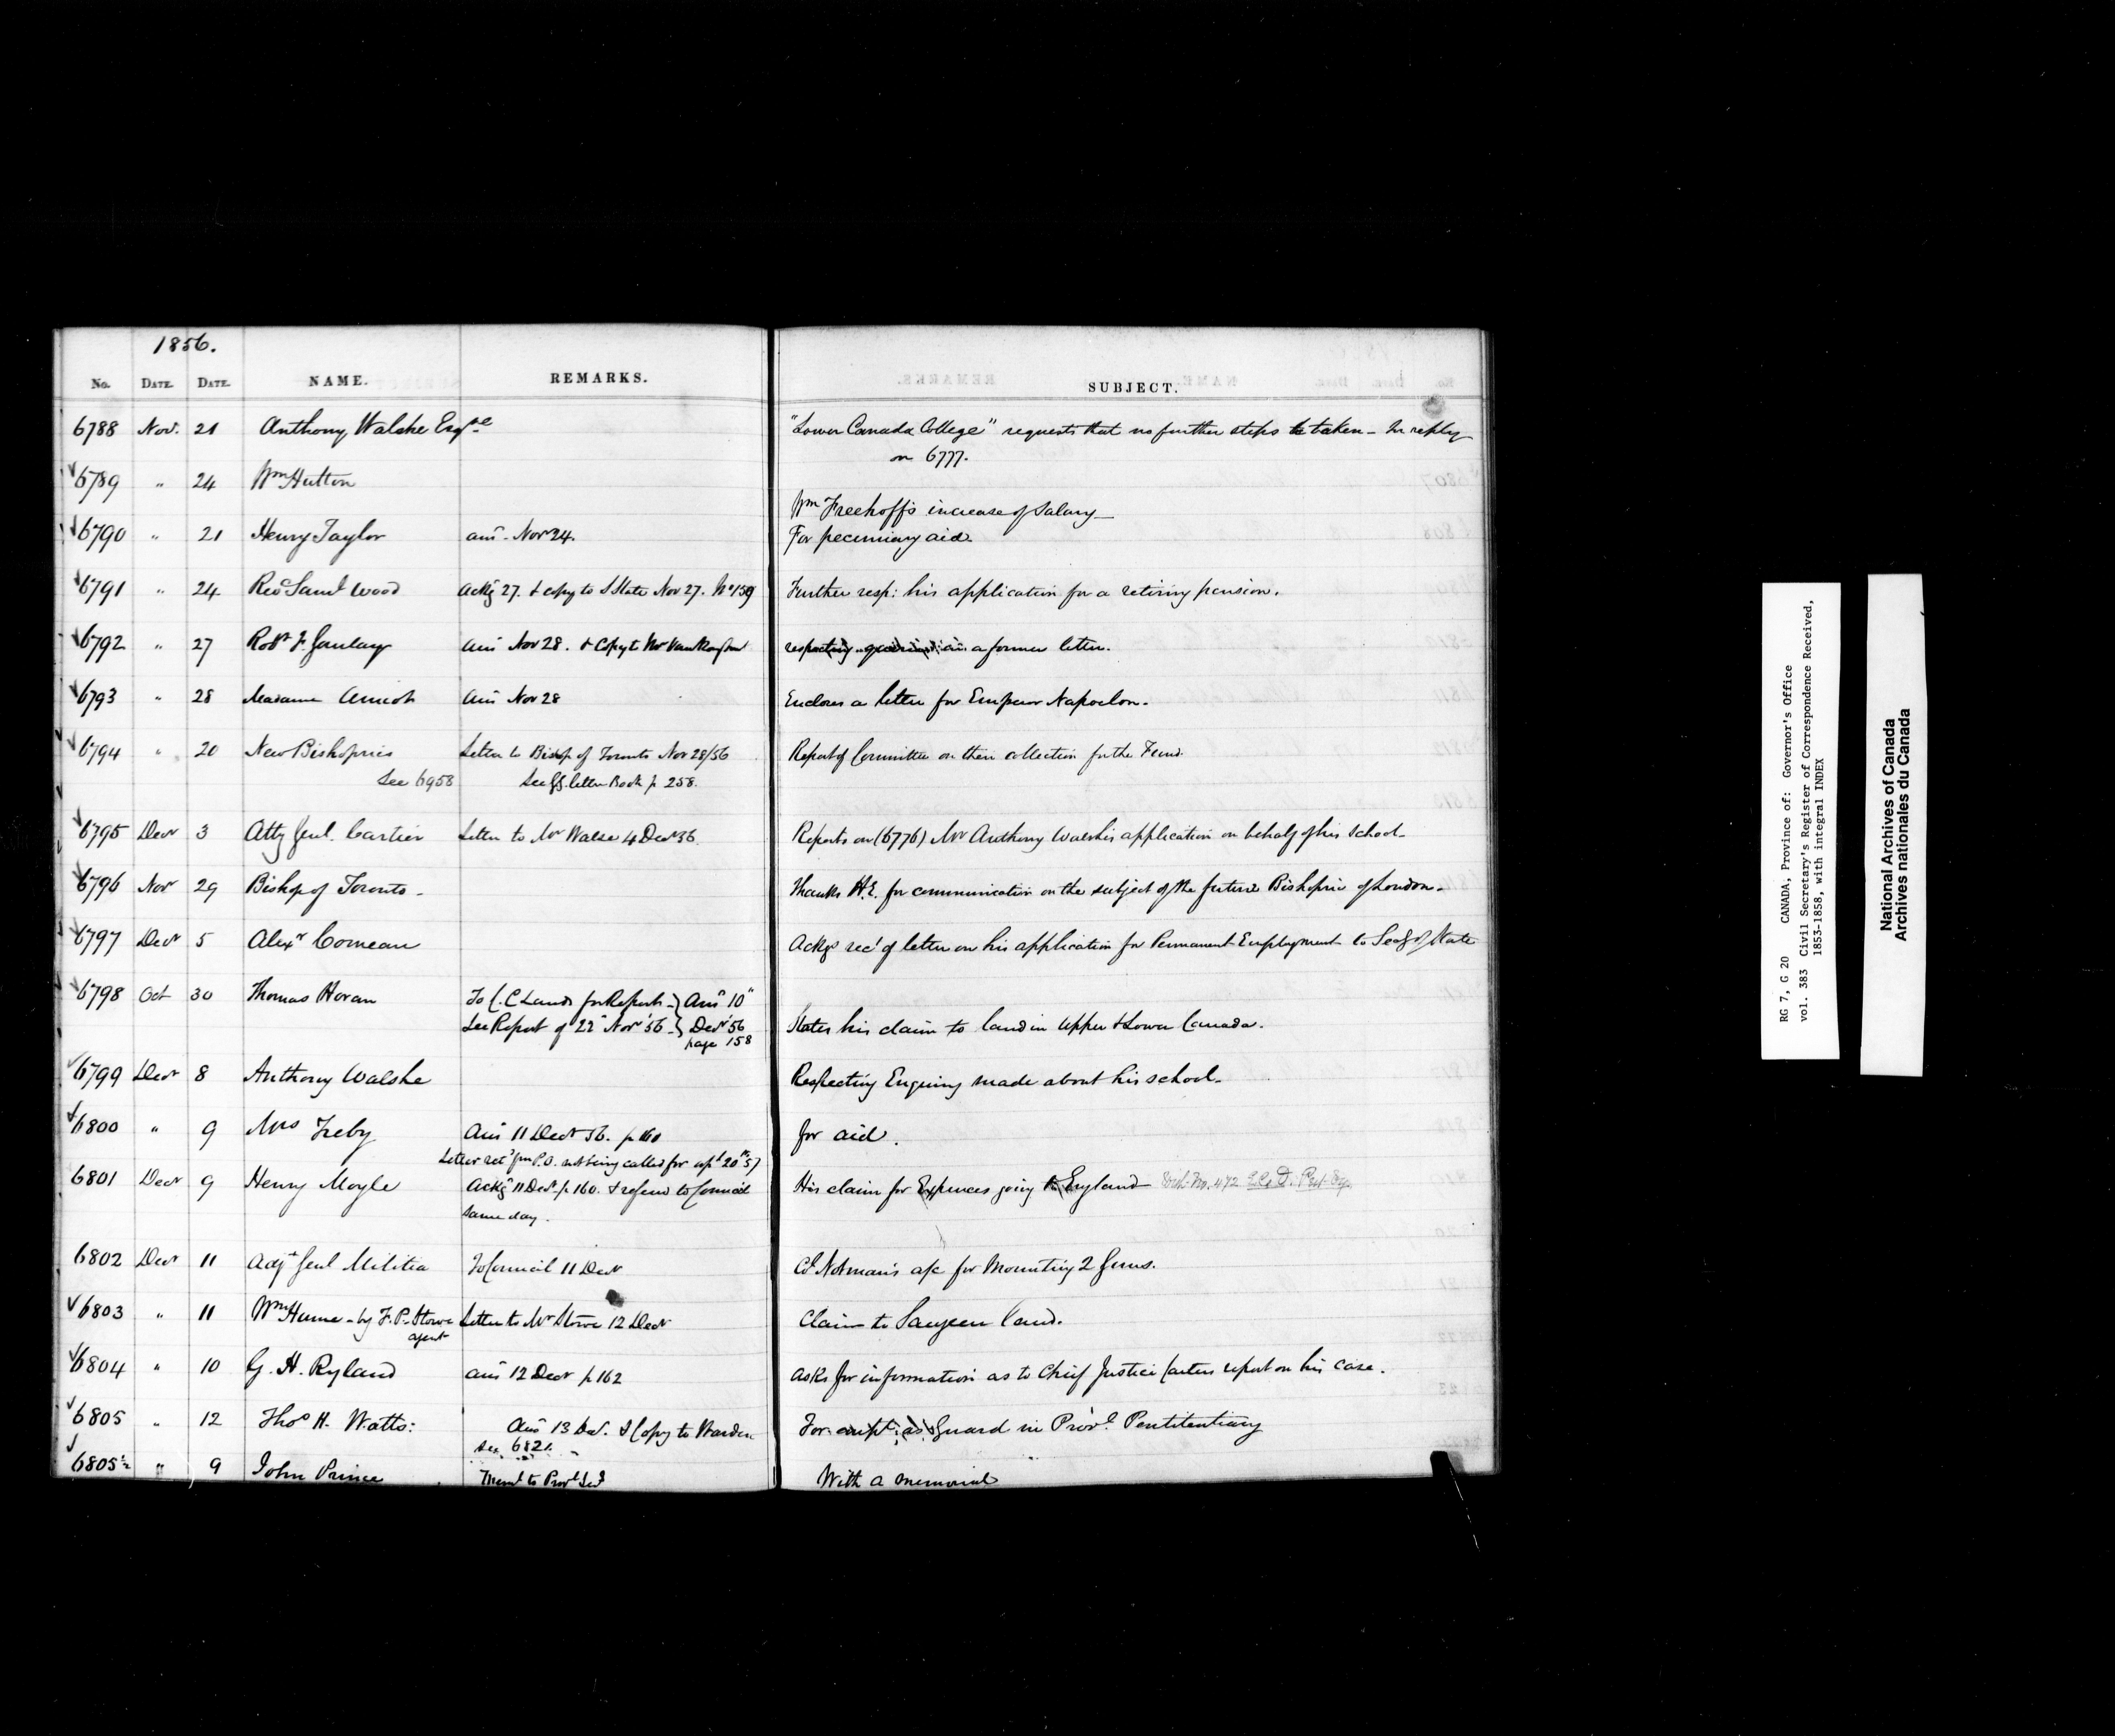 1856.
No. DATE. DATE. NAME. REMARKS. SUBJECT.
6788 Nov. 21 Anthony Walshe Esqre "Lower Canada College" requests that no further steps be taken - In reply
on 6777.
6789 " 24 Wm Hutton Wm Freehoffs increase of Salary
6790 " 21 Henry Taylor ans Nov 24. For pecuniary aid.
6791 " 24 Revd Saml Wood Ackg 27. & copy to S State Nov 27. No 159 Further resp: his application for a retiring pension.
6792 " 27 Robt F. Gourlay Ans Nov 28. & Copy to Mr Vankoughnet respecting a former letter.
6793 " 28 Madame Amiot Ans Nov 28 Encloses a letter for Emperor Napoleon.
6794 " 20 New Bishoprics Letter to Bishop of Toronto Nov 28/56 Report of Committee on their collection for the Fund
See 6958 See letter Book p 258.
6795 Decr 3 Atty Genl. Cartier Letter to Mr Walse 4 Decr 56. Reports on (6776) Mr Anthony Walshis application on behalf of his School.
6796 Novr 29 Bishop of Toronto - Thanks H.E. for communication on the subject of the future Bishopric of London.
6797 Decr 5 Alexr Comeau Ackgs rec't of letter on his application for Permanent Employment to Secy of State
6798 Oct 30 Thomas Horan To C. C Lands for Report - } Ans 10"
See Report of 22 Novr '56 - } Decr '56 States his claim to land in Upper & Lower Canada.
page 158
6799 Decr 8 Anthony Walshe Respecting Enquiry made about his school.
6800 " 9 Mrs Treby Ans 11 Decr 56. p 160 for aid.
Letter retd fm P.O. not being called for apl 20th 57
6801 Decr 9 Henry Moyle Ackg 11 Decr p 160. & referred to Council His claim for Expences going to England
same day.
6802 Decr 11 Adjt Genl Militia To Council 11 Decr Col Notman's a/c for Mounting 2 Guns.
6803 " 11 Wm Hume - by F. P. Stowe Letter to Mr Stowe 12 Decr Claim to Saugeen land.
agent
6804 " 10 G. H. Ryland ans 12 Decr p 162 Asks for information as to Chief Justice Carters report on his case.
6805 " 12 Thos H. Watts: Ans 13 Decr. & Copy to Warden For empt: as Guard in Provl Pentitentiary
See 6821.
6805½ " 9 John Prince Meml to Provl Secy With a memorial
RG 7, G 20 CANADA, Province of: Governor's Office
vol. 383 Civil Secretary's Register of Correspondence Received,
1853-1858, with integral INDEX
National Archives of Canada
Archives nationales du Canada